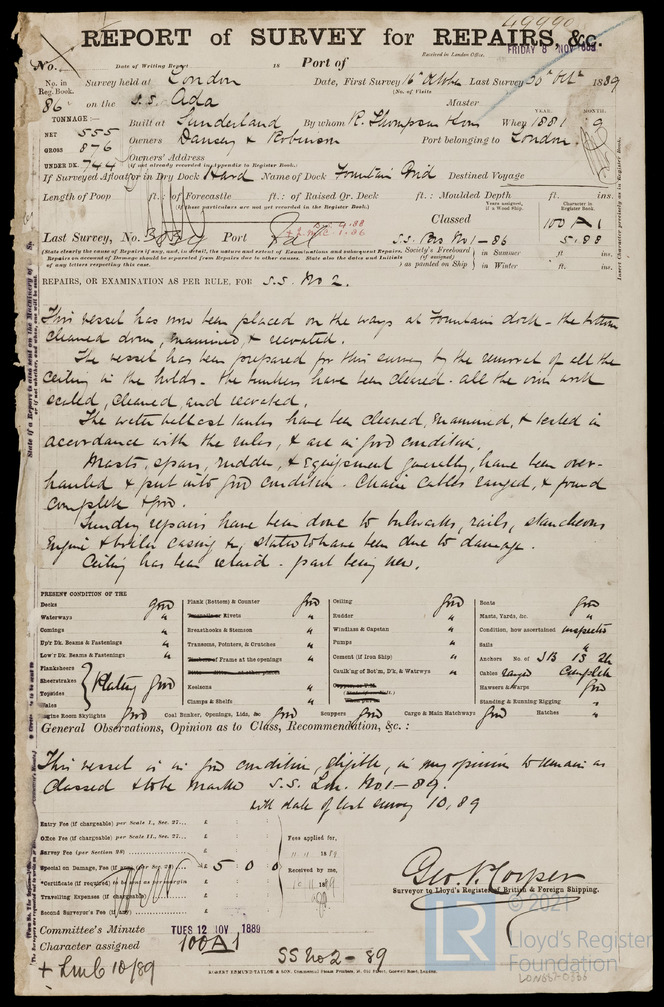 49990
REPORT of SURVEY for REPAIRS, &c.
FRIDAY 8 NOV 1889
No. Date of Writing Report 18 Port of Received in London Office.
No. in Reg. Book. Survey held at London Date, First Survey 16th October Last Survey 30th Octr 1889
(No. of Visits
86 on the S.S. Ada Master
TONNAGE:— YEAR. MONTH.
NET 555 Built at Sunderland By whom R. Thompson & Sons When 1881 9
GROSS 876 Owners & Robinson Port belonging to London
UNDER DK. 744 Owners' Address
(If not already recorded in Appendix to Register Book.)
If Surveyed Afloat or in Dry Dock Hard Name of Dock Fountain Destined Voyage
Length of Poop ft. : of Forecastle ft. : of Raised Qr. Deck ft. : Moulded Depth ft. ins.
(If these particulars are not yet recorded in the Register Book.)
Years assigned, if a Wood Ship. Character in Register Book.
Classed 100 A 1
Last Survey, No. Port S.S. No 1-86 5.88
Society's Freeboard (if assigned) as painted on Ship in Summer ft. ins.
in Winter ft. ins.
REPAIRS, OR EXAMINATION AS PER RULE, FOR S.S. No 2.
This vessel has now been placed on the ways at Fountain dock - the bottom
cleaned down, examined, & recoated.
The vessel has been prepared for this survey by the removal of all the
Ceiling in the holds - the bunkers have been cleared - all the iron work
scaled, cleaned, and recoated.
The water ballast tanks have been cleaned, examined, & tested in
accordance with the rules, & are in good condition.
Masts, spars, rudder, & Equipment generally, have been over-
hauled & put into good condition. Chain Cables ranged, & found
complete & good.
Sundry repairs have been done to bulwarks, rails, stancheons
Engine & boiler casing &c, stated to have been due to damage.
Ceiling has been relaid - part being new.
PRESENT CONDITION OF THE
Decks good
Waterways "
Comings "
Up'r Dk. Beams & Fastenings "
Low'r Dk. Beams & Fastenings "
Planksheers
Sheerstrakes
Topsides
Wales
Plating good
Engine Room Skylights good
Plank (Bottom) & Counter good
Rivets "
Breasthooks & Stemson "
Transoms, Pointers, & Crutches "
of Frame at the openings "
Keelsons "
Clamps & Shelfs "
Coal Bunker, Openings, Lids, &c good
Ceiling good
Rudder "
Windlass & Capstan "
Pumps "
Cement (if Iron Ship) "
Caulk'ng of Bot'm, D'k, & Watrwys "
Scuppers good Cargo & Main Hatchways good
Boats good
Masts, Yards, &c. "
Condition, how ascertained inspected
Sails "
Anchors No. of 3 B 1 S 2 K
Cables ranged Complete
Hawsers & Warps good
Standing & Running Rigging "
Hatches "
General Observations, Opinion as to Class, Recommendation, &c. :
This vessel is in good condition, eligible, in my opinion to remain as
Classed & to be marked S.S. Lon. No 1-89.
with date of last survey 10,89
Entry Fee (if chargeable) per Scale I., Sec. 27... £ : :
Office Fee (if chargeable) per Scale II., Sec. 27... £ : : Fees applied for,
Survey Fee (per Section 28) £ : : 11 11 1889
Special on Damage, Fee (if any) £ 5 0 0 Received by me,
Certificate (if required) to be sent as per margin £ : : 10.11.1889
Travelling Expenses (if chargeable) £ : :
Second Surveyor's Fee (if any) £ : :
Geo. Cooper
Surveyor to Lloyd's Register of British & Foreign Shipping.
Committee's Minute TUES 12 NOV 1889
Character assigned 100A1
+ LMC 10/89 SS No 2 - 89
ROBERT EDMUND TAYLOR & SON, Commercial Steam Printers, 19, Old Street, Goswell Road, London.
© 2021
LR Lloyd's Register
Foundation